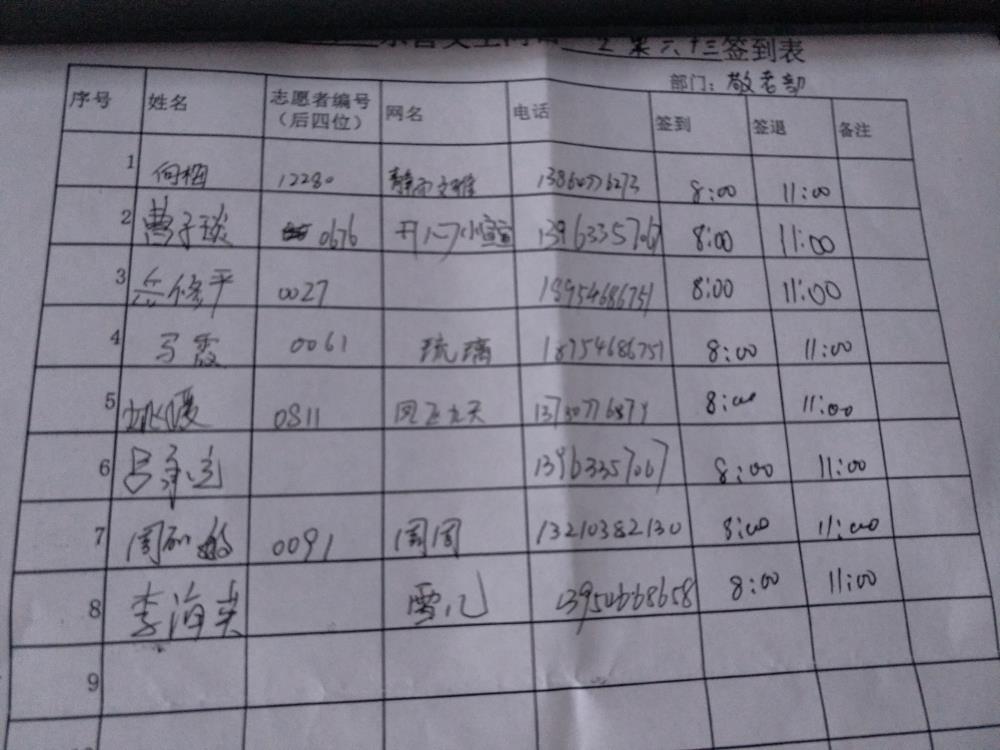 第六十三签到表
部门：敬老部
序号 姓名 志愿者编号（后四位） 网名 电话 签到 签退 备注
1 何梅 12280 8:00 11:00
2 曹子琰 0676 开心小萱萱 13963357067 8:00 11:00
3 修平 0027 18954686751 8:00 11:00
4 马霞 0061 琉璃 18754686751 8:00 11:00
5 0811 风飞九天 8:00 11:00
6 吕 13963357067 8:00 11:00
7 周 0091 周周 13210382130 8:00 11:00
8 李海英 雪儿 13954668658 8:00 11:00
9